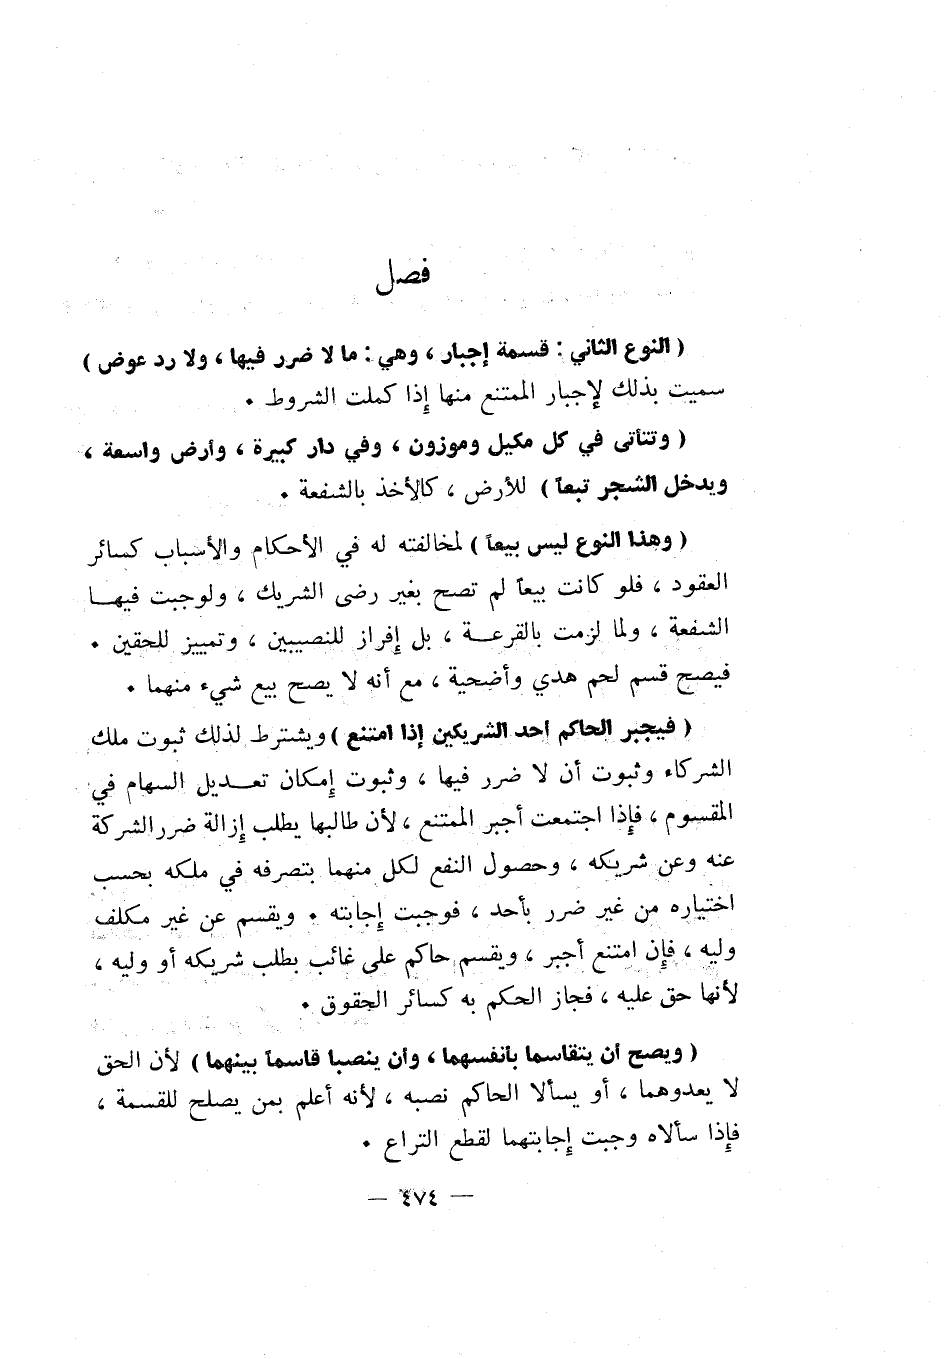 فصل
( النوع الثاني : قسمة إجبار ، وهي : ما لا ضرر فيها ، ولا رد عوض )
سميت بذلك لإجبار الممتنع منها إذا كملت الشروط .
( وتتأتى في كل مكيل وموزون ، وفي دار كبيرة ، وأرض واسعة ،
ويدخل الشجر تبعاً ) للأرض ، كالأخذ بالشفعة .
( وهذا النوع ليس بيعاً ) لمخالفته له في الأحكام والأسباب كسائر
العقود ، فلو كانت بيعاً لم تصح بغير رضى الشريك ، ولوجبت فيهـا
الشفعة ، ولما لزمت بالقرعـة ، بل إفراز للنصيبين ، وتمييز للحقين .
فيصح قسم لحم هدي وأضحية ، مع أنه لا يصح بيع شيء منهما .
( فيجبر الحاكم احد الشريكين إذا امتنع ) ويشترط لذلك ثبوت ملك
الشركاء وثبوت أن لا ضرر فيها ، وثبوت إمكان تعـديل السهام في
المقسوم ، فإذا اجتمعت أجبر الممتنع ، لأن طالبها يطلب إزالة ضرر الشركة
عنه وعن شريكه ، وحصول النفع لكل منهما بتصرفه في ملكه بحسب
اختياره من غير ضرر بأحد ، فوجبت إجابته . ويقسم عن غير مكلف
وليه ، فإن امتنع أجبر ، ويقسم حاكم على غائب بطلب شريكه أو وليه ،
لأنها حق عليه ، فجاز الحكم به كسائر الحقوق .
( ويصح أن يتقاسما بأنفسهما ، وأن ينصبا قاسماً بينهما ) لأن الحق
لا يعدوهما ، أو يسألا الحاكم نصبه ، لأنه أعلم بمن يصلح للقسمة ،
فإذا سألاه وجبت إجابتهما لقطع النزاع .
— ٤٧٤ —